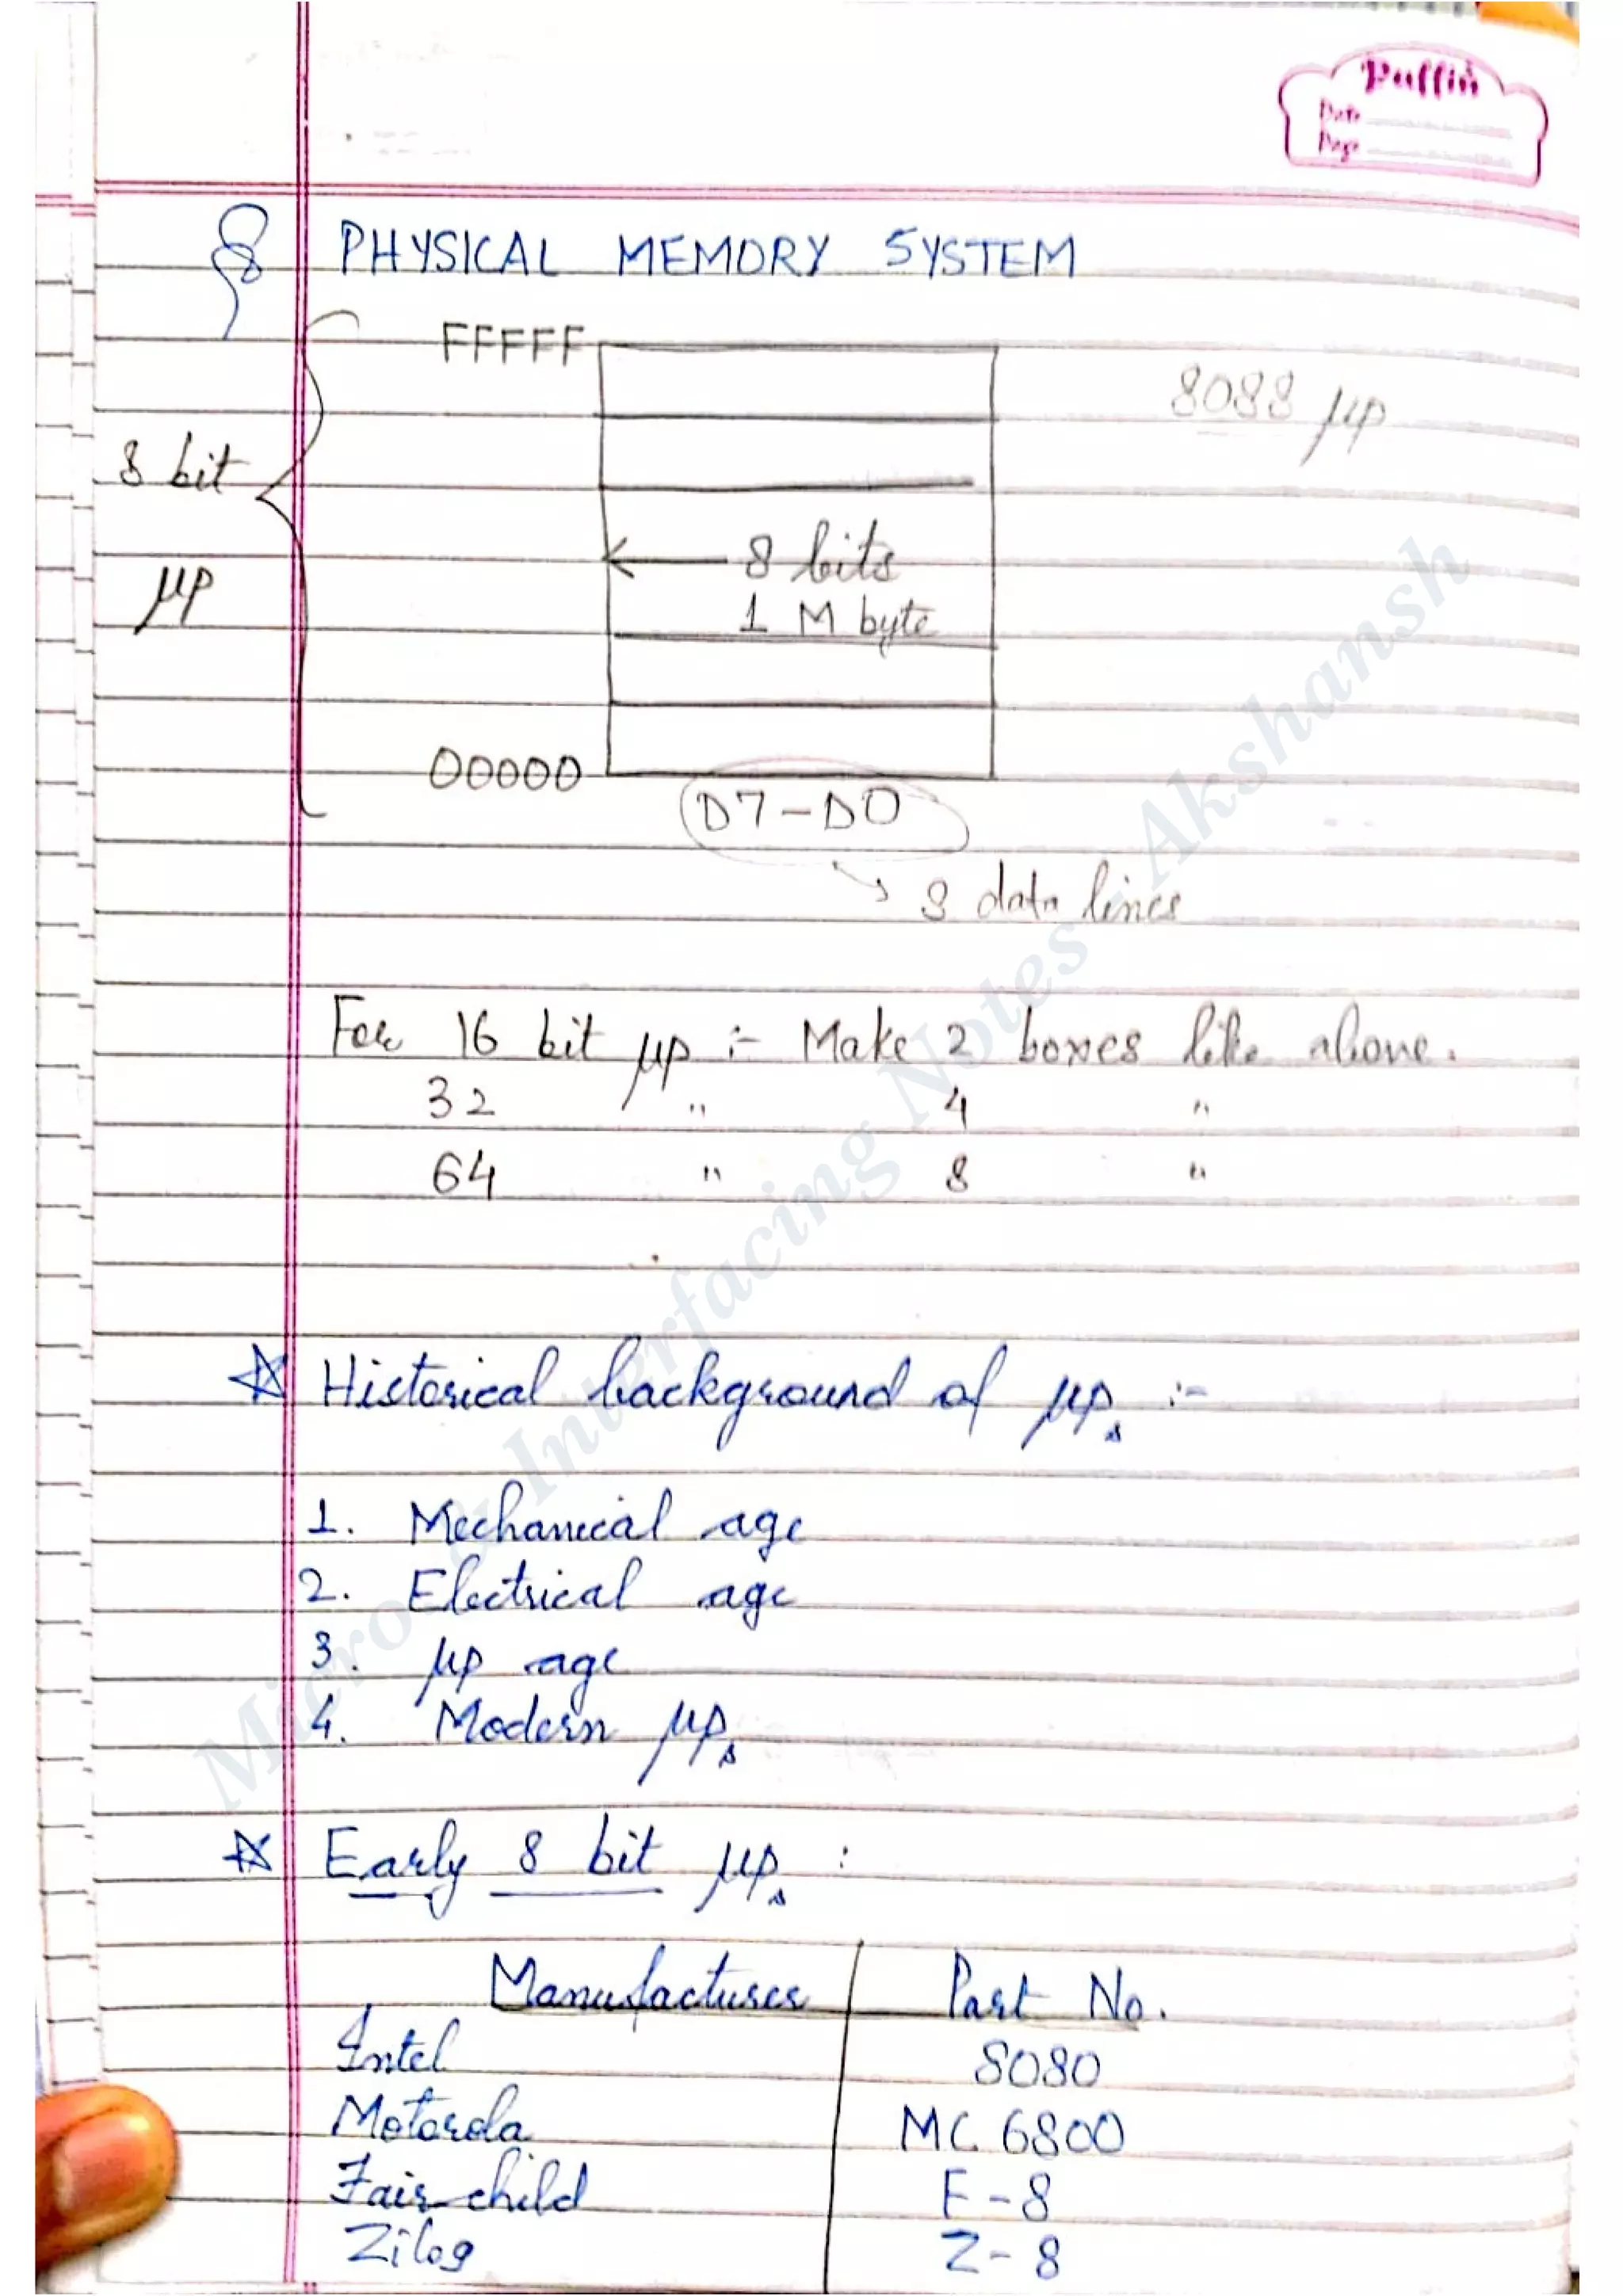 Puffin
Date
Page
PHYSICAL MEMORY SYSTEM
FFFFF
8088 μp
8 bit
μp
8 bits
1 M byte
00000
D7-D0
8 data lines
For 16 bit μp :- Make 2 boxes like above.
32 " 4 "
64 " 8 "
Historical background of μps :-
1. Mechanical age
2. Electrical age
3. μp age
4. Modern μps
Early 8 bit μps :
Manufacturer Part No.
Intel 8080
Motorola MC 6800
Fairchild F-8
Zilog Z-8
Micro & Interfacing Notes Akshansh